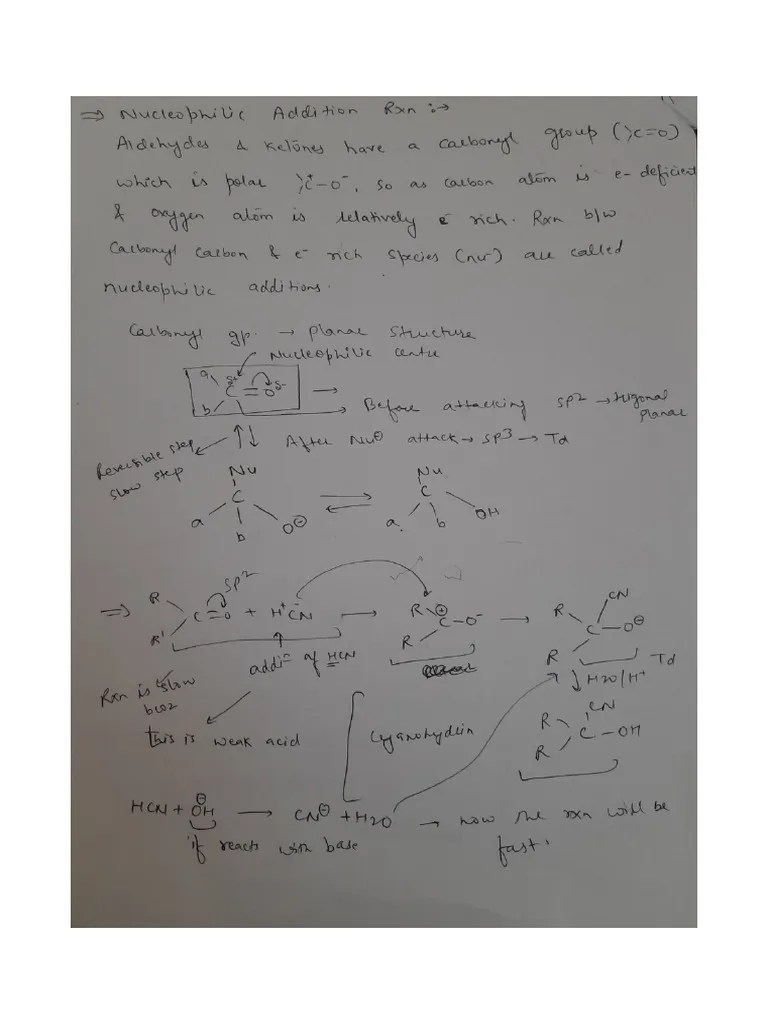 ⇒ Nucleophilic Addition Rxn :→
Aldehydes & Ketones have a carbonyl group (>C=O)
which is polar >C⁺–O⁻, so as carbon atom is e- deficient
& oxygen atom is relatively e⁻ rich. Rxn b/w
Carbonyl carbon & e⁻ rich species (nu⁻) are called
nucleophilic additions.
Carbonyl gp. → planar structure
Nucleophilic centre
a
C δ+ = O δ-
b
→ Before attacking sp2 → trigonal
planar
Reversible step
slow step
After Nu⊖ attack → sp3 → Td
Nu
C
a b O⊖
⇌
Nu
C
a b OH
⇒ R
R' C=O + H⁺ C̄N → R
R C⊕–O⁻ → R
R C–O⊖
CN
sp2
Td
addiⁿ of HCN
Rxn is slow
bcoz
this is weak acid
↓ H2O/H⁺
R
R C–OH
CN
Cyanohydrin
HCN + OH⊖ → CN⊖ + H2O → now the rxn will be
fast.
if reacts with base